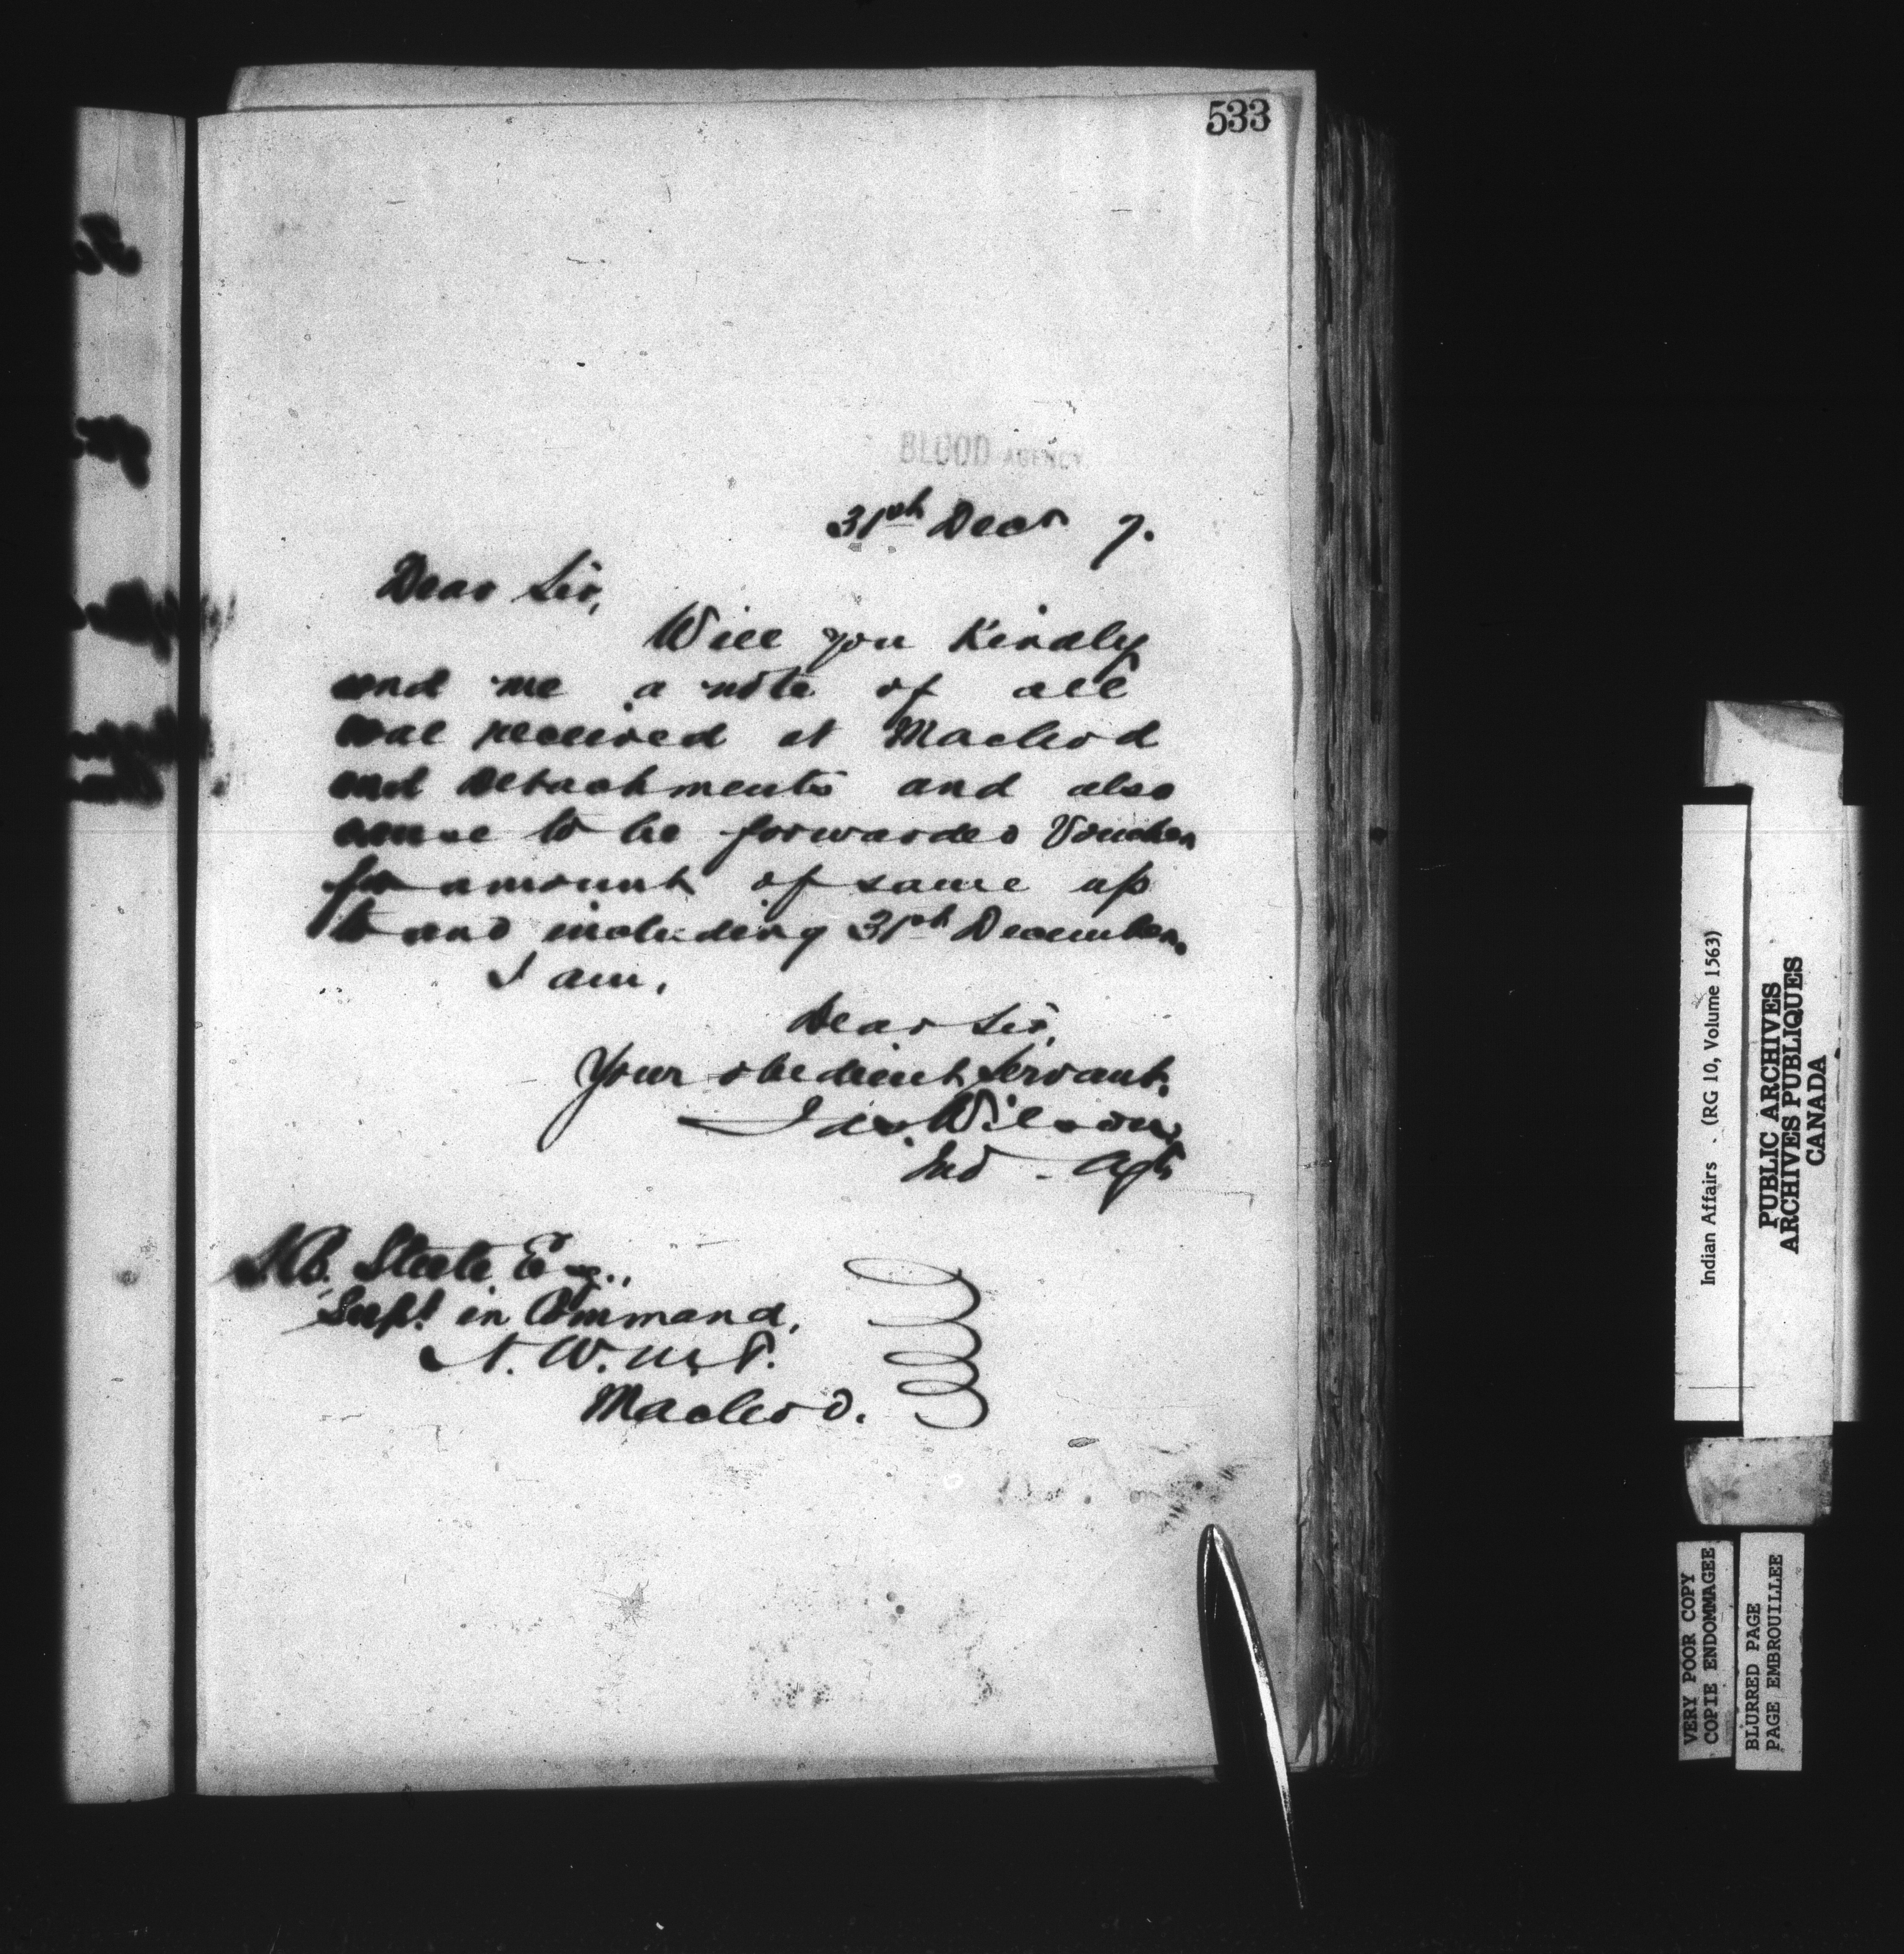 533
BLOOD AGENCY
31st Decr 7.
Dear Sir,
Will you Kindly
send me a note of all
coal received at Macleod
and Detachments and also
cause to be forwarded Voucher
for amount of same up
to and including 31st December.
I am,
Dear Sir,
Your obedient Servant,
Jas. Wilson,
Ind - Agt
S.B. Steele Esq.,
Supt in Command,
N.W.M.P.
Macleod.
Indian Affairs . (RG 10, Volume 1563)
PUBLIC ARCHIVES
ARCHIVES PUBLIQUES
CANADA
VERY POOR COPY
COPIE ENDOMMAGEE
BLURRED PAGE
PAGE EMBROUILLEE